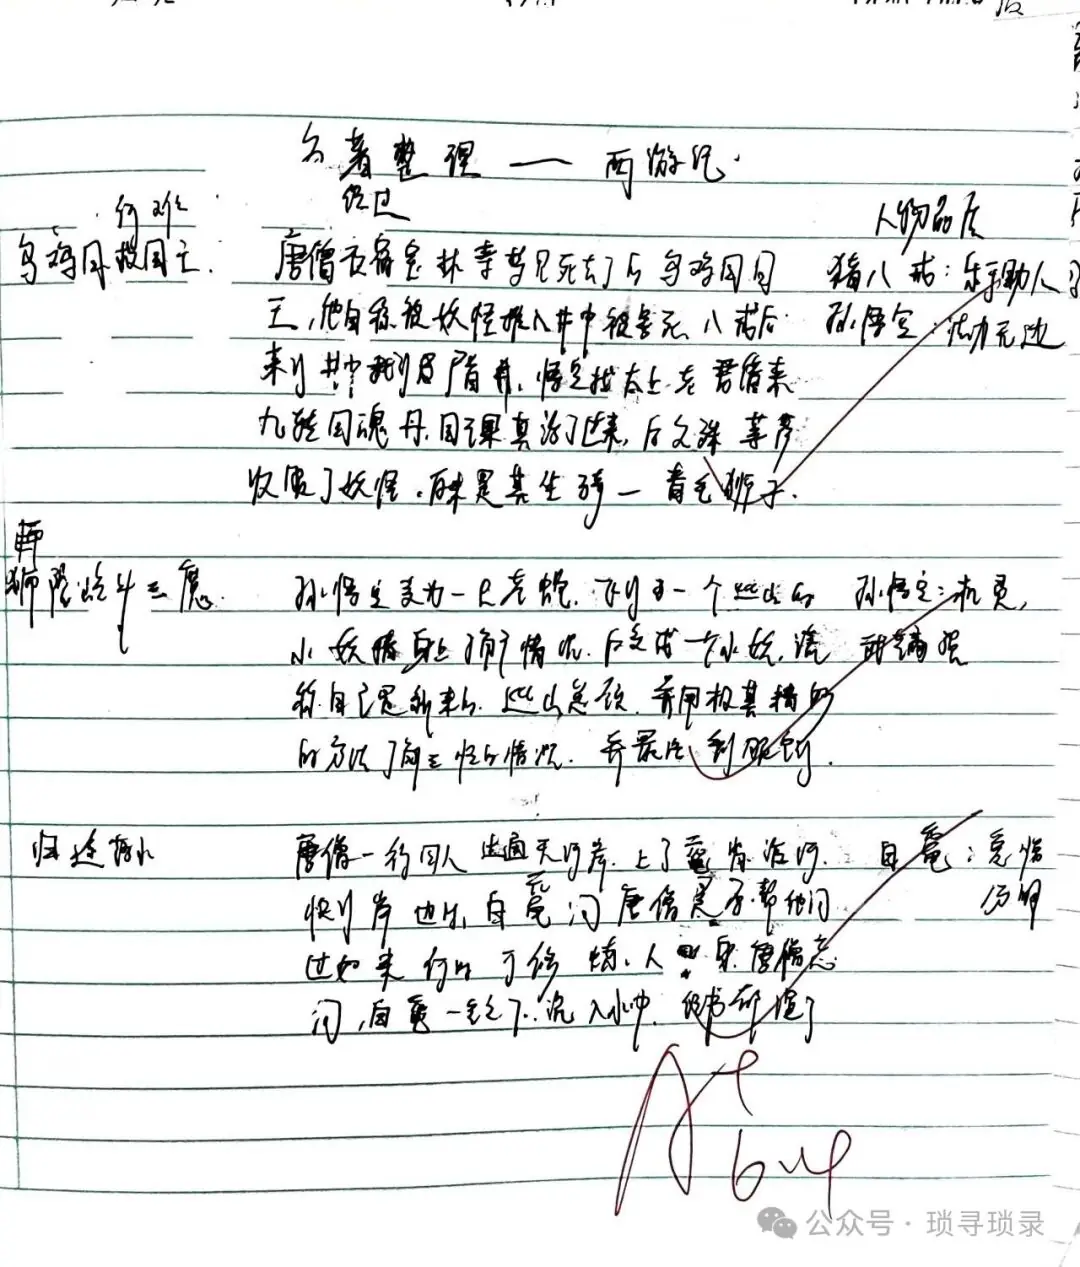 名著整理——西游记
何难
经过
人物品质
乌鸡国救国王.
唐僧夜宿宝林寺梦见死去了的乌鸡国国
王,他自称被妖怪推入井中被害死,八戒后
来到井中找到尸首并,悟空找太上老君借来
九转还魂丹,国王果真活了过来,后文殊菩萨
收服了妖怪.原来是其坐骑一青毛狮子.
猪八戒:乐于助人
孙悟空:法力无边
狮陀岭斗三魔.
孙悟空变为一只苍蝇,飞到了一个巡山的
小妖精身上了解了情况.后变成一个小妖,谎
称自己是新来的巡山总领,并用极其精明
的方法了解三怪的情况.并最后制服
孙悟空:机灵,
归途落水
唐僧一行四人出通天河岸,上了鼋背治河.
快到岸边时,白鼋问唐僧是否帮他问
过如来何时可修炼人
唐僧忘
问,白鼋一气之下,沉入水中,经书都湿了
白鼋:恩怨
分明
A+
6.4
公众号·琐寻琐录